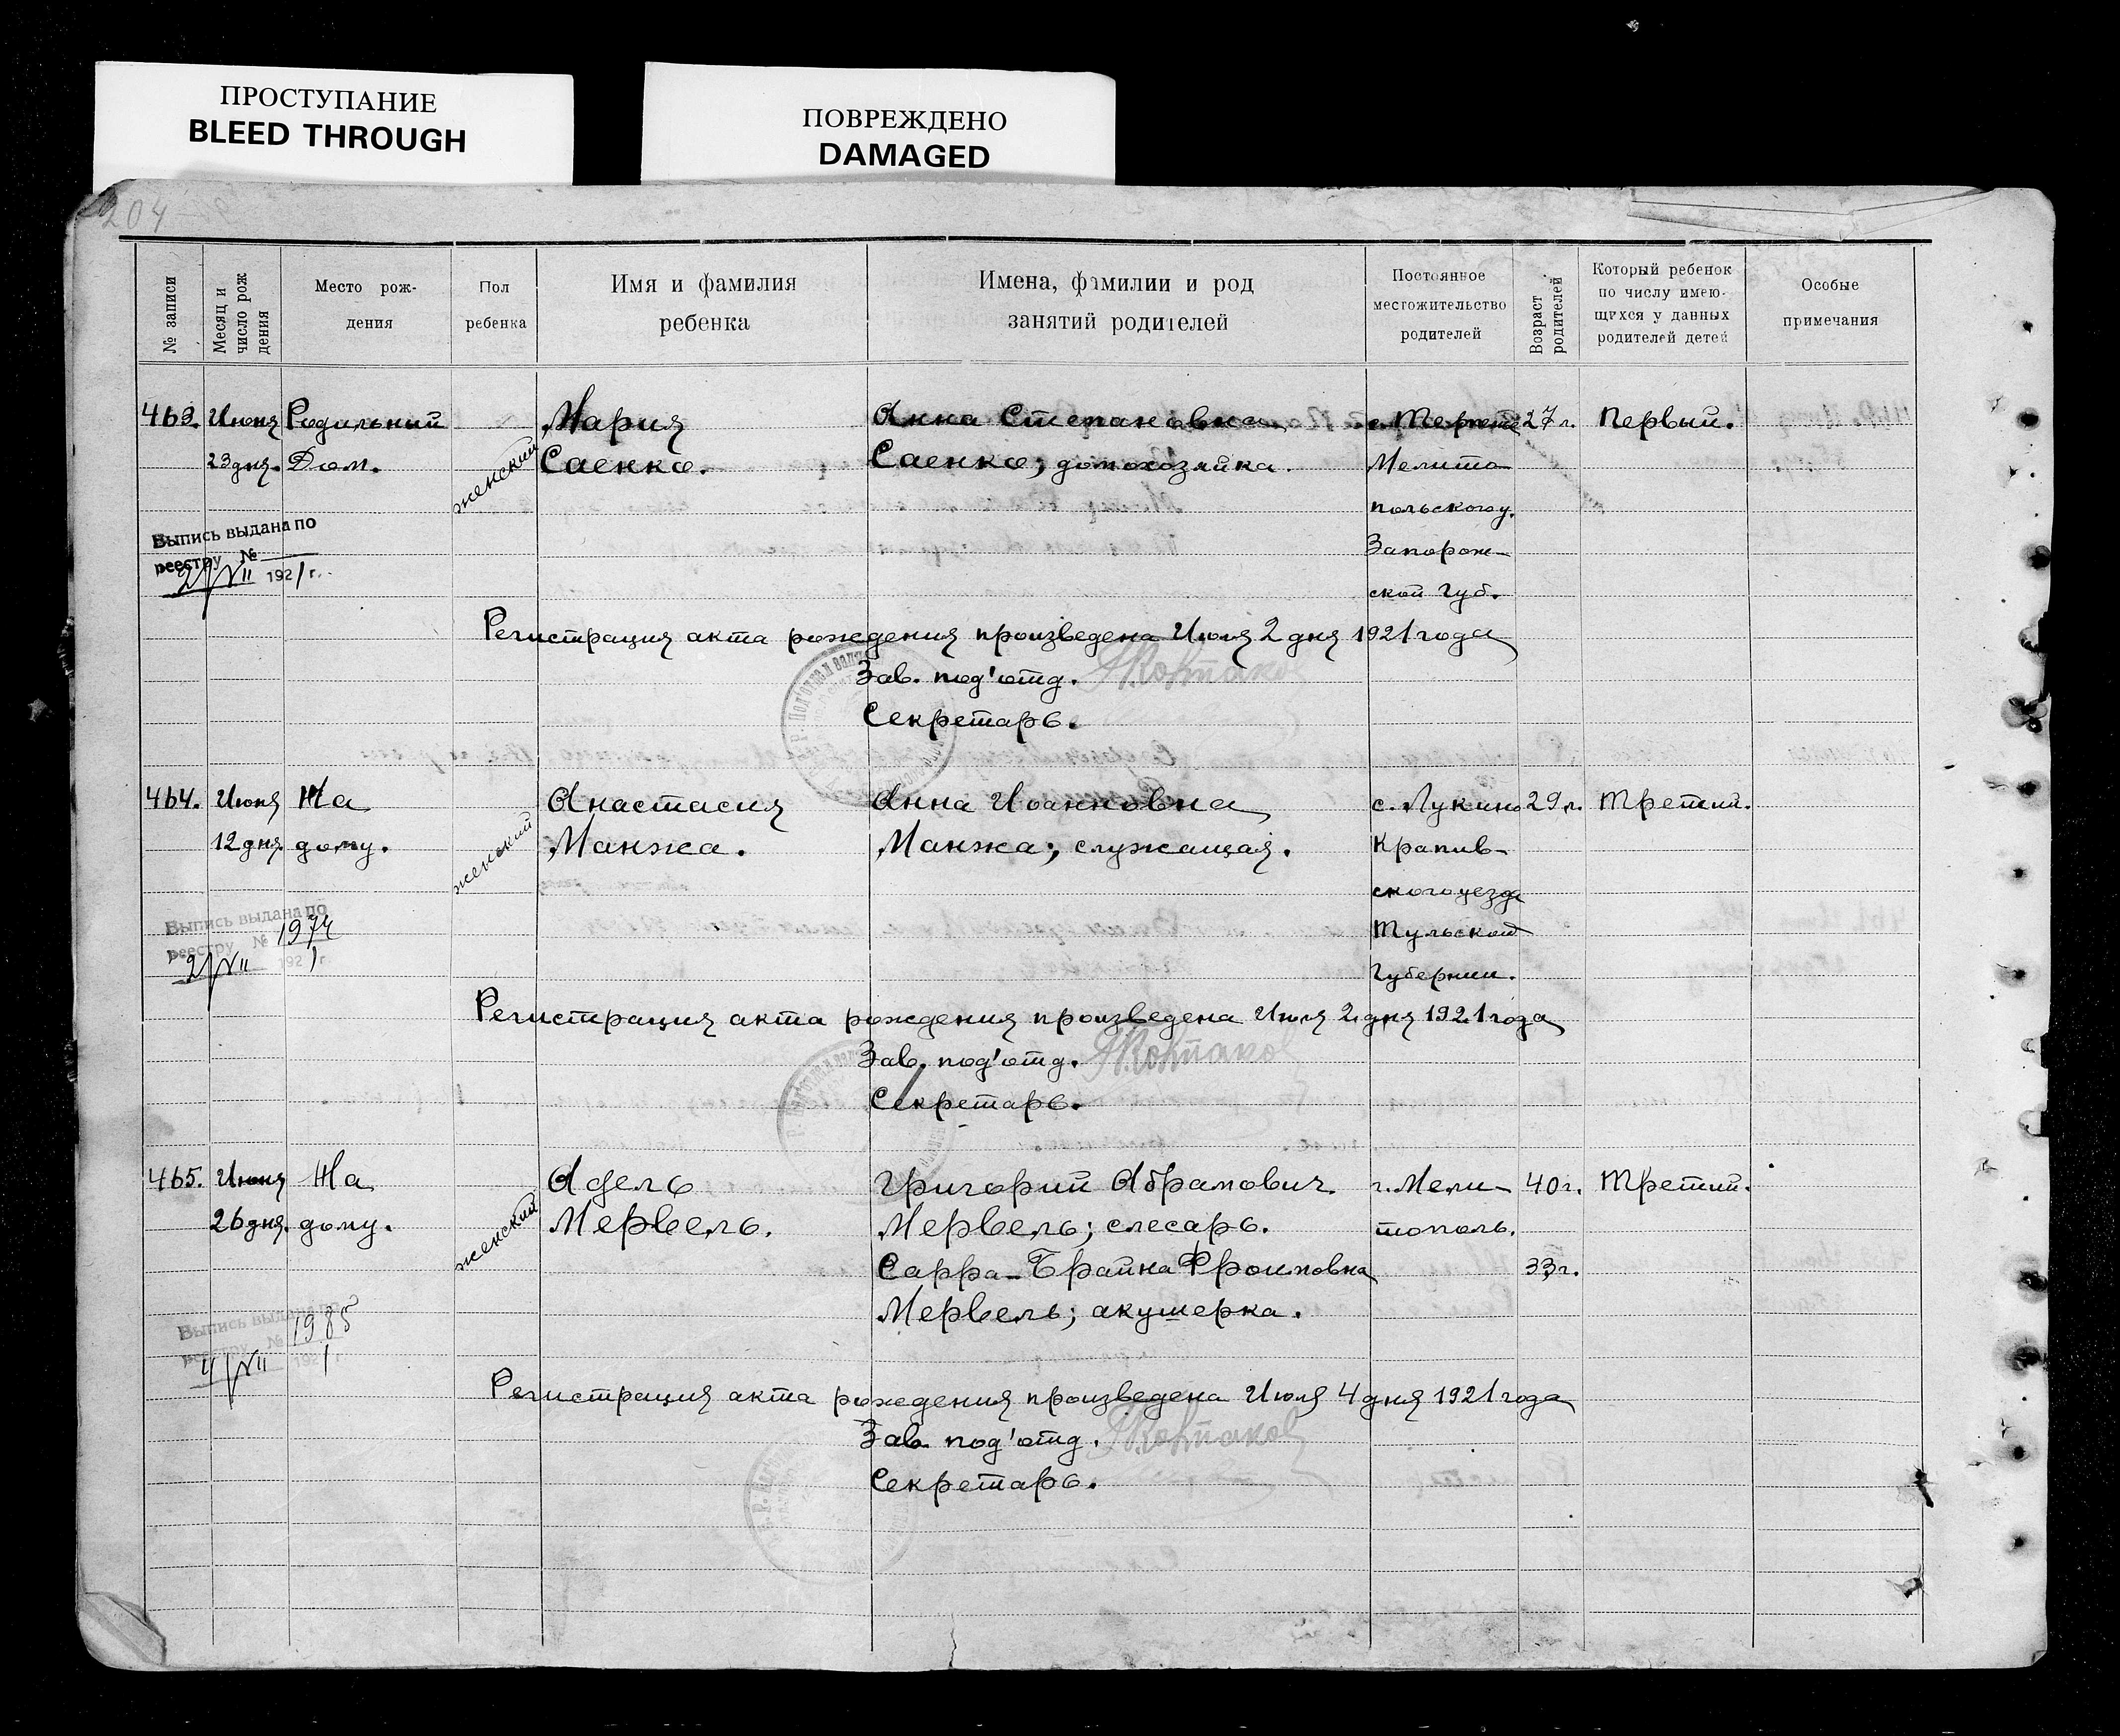 ПРОСТУПАНИЕ
BLEED THROUGH
ПОВРЕЖДЕНО
DAMAGED
204
№ записи
Месяц и
число рож
дения
Место рож-
дения
Пол
ребенка
Имя и фамилия
ребенка
Имена, фамилии и род
занятий родителей
Постоянное
местожительство
родителей
Возраст
родителей
Который ребенок
по числу имею-
щихся у данных
родителей детей
Особые
примечания
463. Июня Родильный Мария Анна Степановна 27 г. Первый.
23 дня. Дом. женский Саенко. Саенко; домохозяйка. Мелито-
польского у.
Запорож-
ской губ.
Выпись выдана по
реестру №
2/VII 1921 г.
Регистрация акта рождения произведена Июля 2 дня 1921 года
Зав. под'отд.
Секретарь.
464. Июня На Анастасия Анна Иоанновна с. Лукино 29 л. Третий.
12 дня. дому. женский Манжа. Манжа; служащая. Крапив-
ского уезда
Тульской
Губернии.
Выпись выдана по
реестру № 1974
2/VII 1921 г
Регистрация акта рождения произведена Июля 2 дня 1921 года
Зав. под'отд.
Секретарь.
465. Июня На Адель Григорий Абрамович г. Мели- 40 г. Третий.
26 дня. дому. женский Мервель. Мервель; слесарь. тополь.
Сарра-Брайна Фроимовна 33 г.
Мервель; акушерка.
Выпись выдана по
реестру № 1985
4/VII 1921 г
Регистрация акта рождения произведена Июля 4 дня 1921 года
Зав. под'отд.
Секретарь.